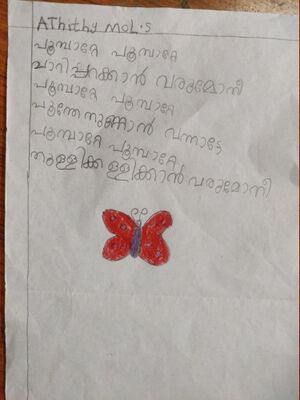 AThithy MOL.S
പൂമ്പാറ്റേ പൂമ്പാറ്റേ
പാറിപ്പറക്കാൻ വരുമോനീ
പൂമ്പാറ്റേ പൂമ്പാറ്റേ
പൂന്തേനുണ്ണാൻ വന്നാട്ടേ
പൂമ്പാറ്റേ പൂമ്പാറ്റേ
തുള്ളിക്കളിക്കാൻ വരുമോനീ